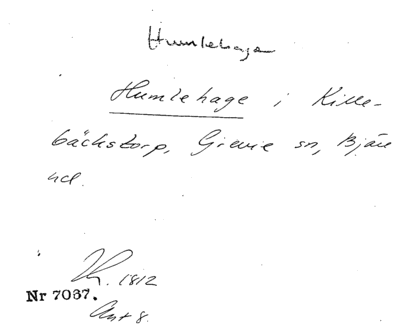 Humlehage
Humlehage i Kille-
bäckstorp, Grevie sn, Bjäre
hd.
1812
Nr 7067.
Akt 8.